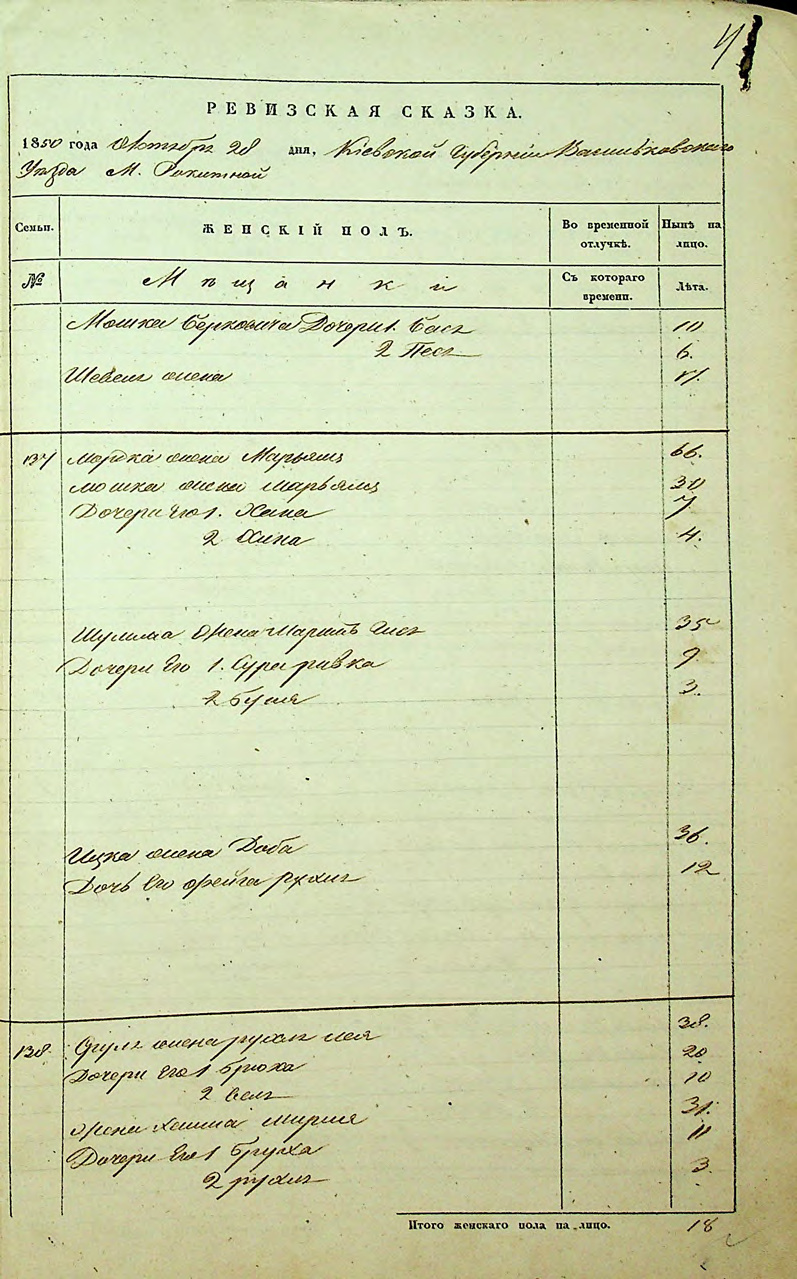 РЕВИЗСКАЯ СКАЗКА.
1850 года Октября 28 дня, Кіевской Губерніи Васильковского
Уезда М. Рокитной
Семьи. ЖЕНСКІЙ ПОЛЪ. Во временной отлучкѣ. Нынѣ на лицо.
№ Мѣщанки Съ котораго времени. Лѣта.
Мошка Берковича Дочери 1. Бася 10
2 Песя 6.
жена
137 Мордка жена Марьям 66.
Мошка жена Марьям 30
Дочери Его 1. Хана 7
2 Хина 4.
Шулима Жена 35
Дочери Его 1. Сура ривка 9
2 Буня 3.
Ицка жена Доба 36.
Дочь Его Фрейга рухля 12
138. Сруля жена рухля лея 38.
Дочери Его 1 Брюха 20
2 10
Жена Хаима Мирия 31.
Дочери Его 1 Бруха 11
2 рухля 3.
Итого женскаго пола на лицо. 18